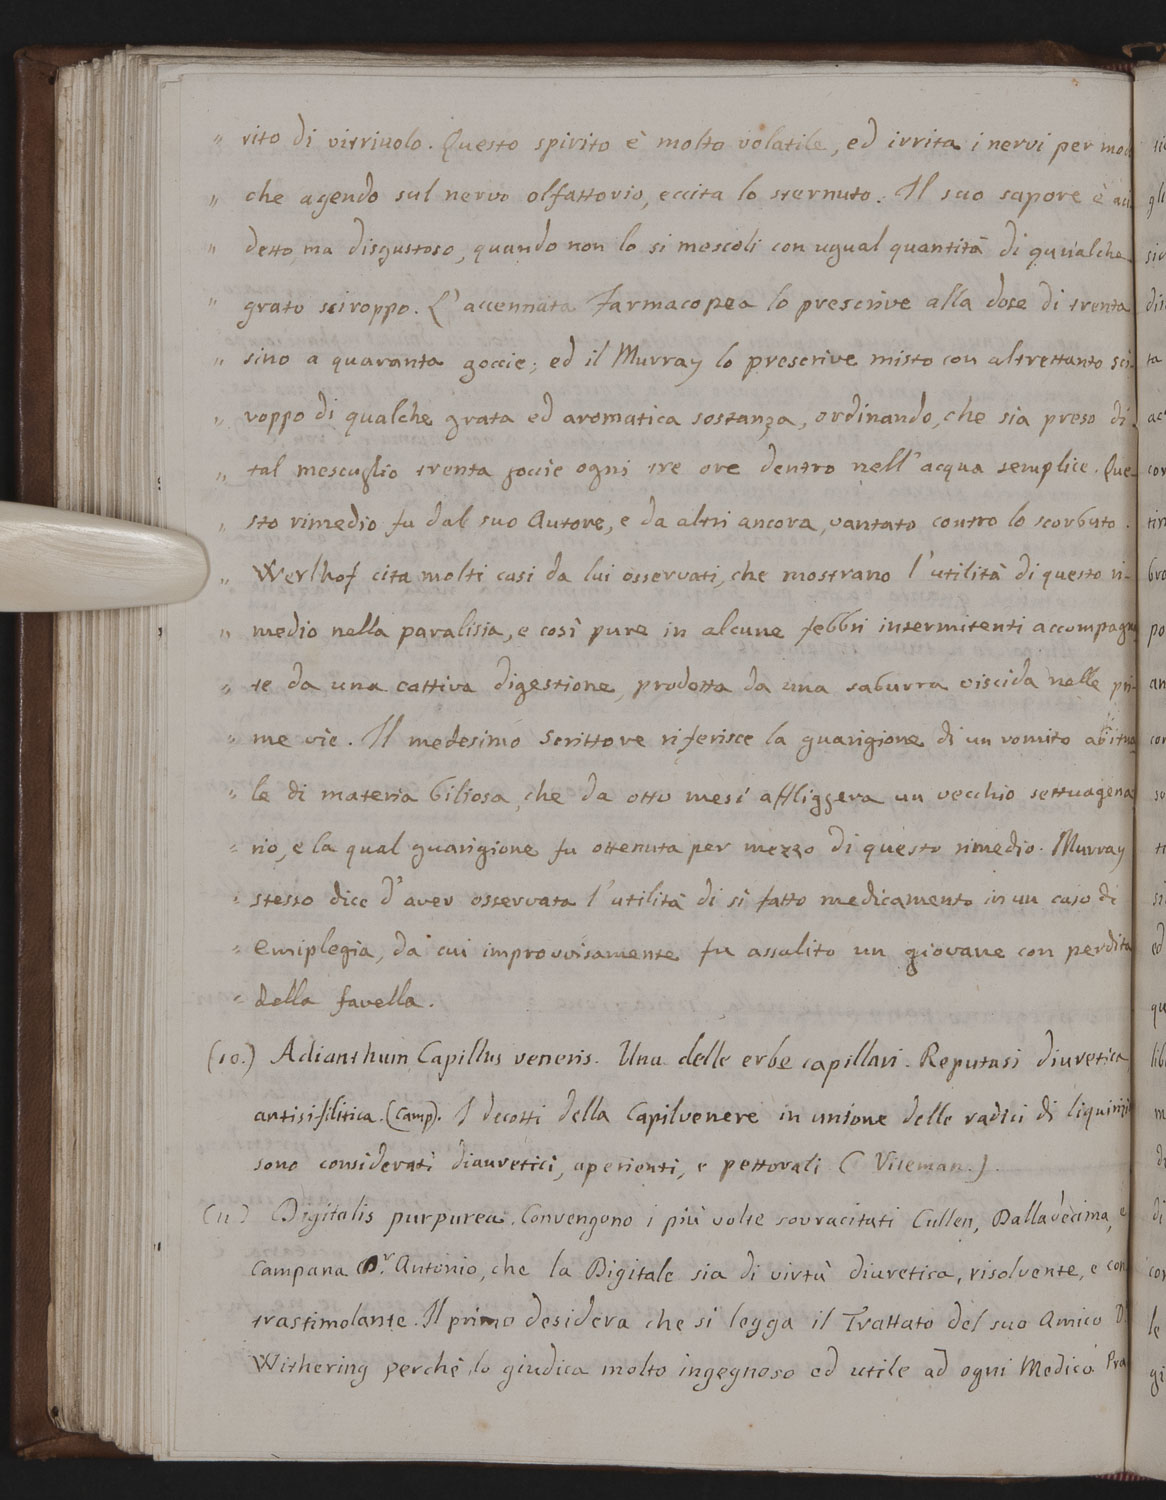 „ rito di vitriuolo. Questo spirito è molto volatile, ed irrita i nervi per mod
„ che agendo sul nervo olfattorio, eccita lo sternuto. Il suo sapore è aci
„ detto, ma disgustoso, quando non lo si mescoli con ugual quantità di qualche
„ grato sciroppo. L'accennata Farmacopea lo prescrive alla dose di trenta
„ sino a quaranta goccie; ed il Murray lo prescrive misto con altrettanto sci-
„ roppo di qualche grata ed aromatica sostanza, ordinando, che sia preso di
„ tal mescuglio trenta goccie ogni tre ore dentro nell'acqua semplice. Que-
„ sto rimedio fu dal suo Autore, e da altri ancora, vantato contro lo scorbuto.
„ Werlhof cita molti casi da lui osservati, che mostrano l'utilità di questo ri-
„ medio nella paralisia, e così pure in alcune febbri intermitenti accompagna
„ te da una cattiva digestione, prodotta da una saburra viscida nelle pri-
„ me vie. Il medesimo Scrittore riferisce la guarigione di un vomito abitua
„ le di materia biliosa, che da otto mesi affliggeva un vecchio settuagena
„ rio, e la qual guarigione fu ottenuta per mezzo di questo rimedio. Murray
„ stesso dice d'aver osservata l'utilità di si fatto medicamento in un caso di
„ Emiplegia, da cui improvvisamente fu assalito un giovane con perdita
„ della favella.
(10.) Adianthum Capillus veneris. Una delle erbe capillari. Reputasi diuretica,
antisifilitica. (Camp). I decotti della Capilvenere in unione delle radici di liquirizi
sono considerati diauretici, aperienti, e pettorali. (Viteman.).
(11) Digitalis purpurea. Convengono i più volte sovracitati Cullen, Dalladecima, e
Campana Dr. Antonio, che la Digitale sia di virtù diuretica, risolvente, e con
trastimolante. Il primo desidera che si legga il Trattato del suo Amico D.
Withering perchè lo giudica molto ingegnoso ed utile ad ogni Medico Pra